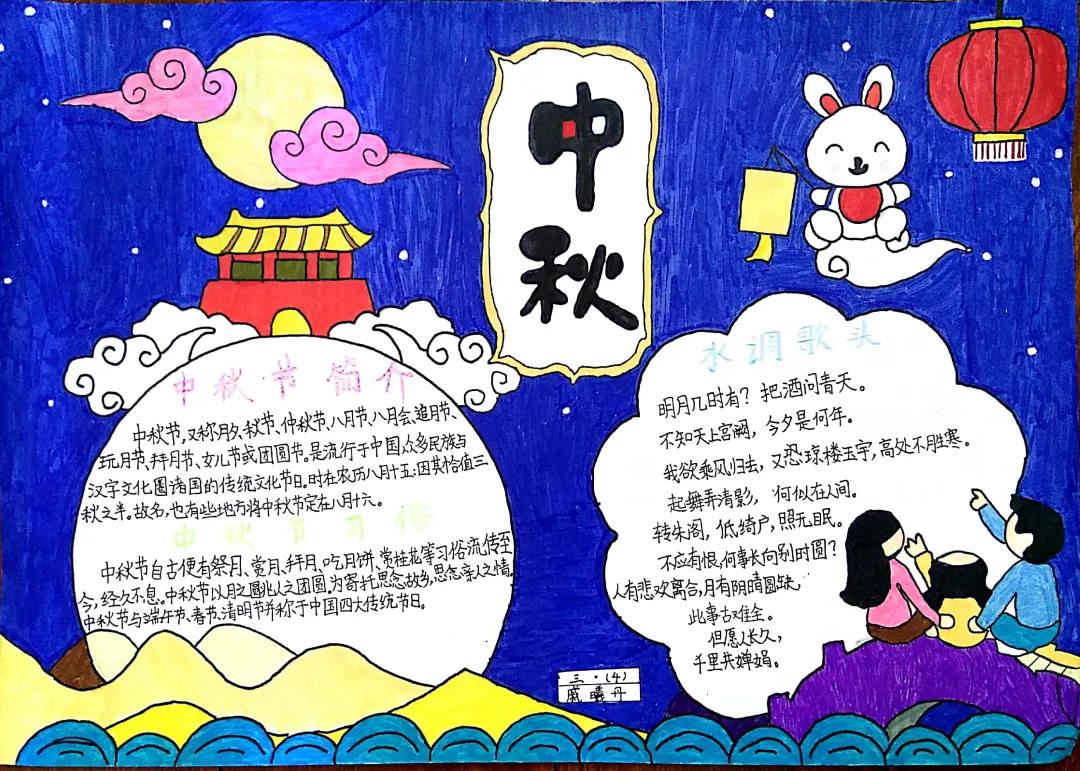 中秋
中秋节简介
中秋节,又称月夕、秋节、仲秋节、八月节、八月会、追月节、
玩月节、拜月节、女儿节或团圆节。是流行于中国众多民族与
汉字文化圈诸国的传统文化节日。时在农历八月十五;因其恰值三
秋之半。故名,也有些地方将中秋节定在八月十六。
中秋节习俗
中秋节自古便有祭月、赏月、拜月、吃月饼、赏桂花等习俗流传至
今,经久不息。中秋节以月之圆兆人之团圆。为寄托思念故乡,思念亲人之情。
中秋节与端午节、春节、清明节并称于中国四大传统节日。
水调歌头
明月几时有?把酒问青天。
不知天上宫阙,今夕是何年。
我欲乘风归去,又恐琼楼玉宇,高处不胜寒。
起舞弄清影,何似在人间。
转朱阁,低绮户,照无眠。
不应有恨,何事长向别时圆?
人有悲欢离合,月有阴晴圆缺,
此事古难全。
但愿人长久,
千里共婵娟。
三·(4)
戚曦丹